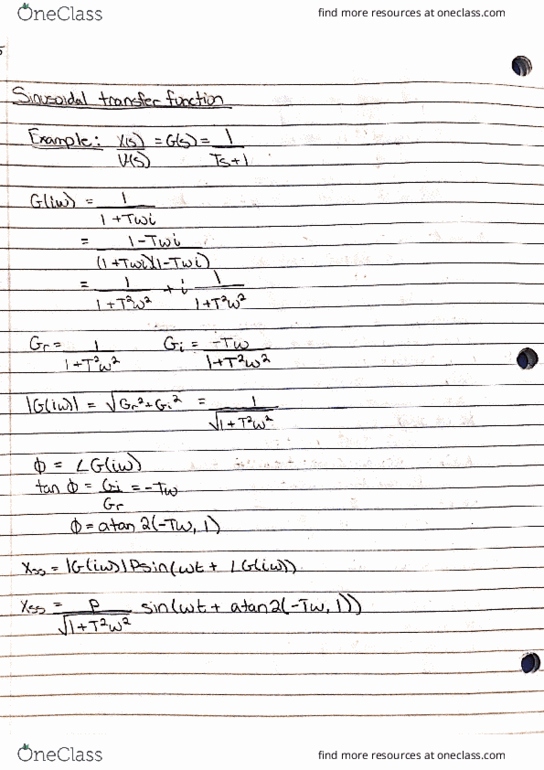 OneClass
find more resources at oneclass.com
Sinusoidal transfer function
Example: X(s)/U(s) = G(s) = 1/(Ts+1)
G(iw) = 1/(1+Twi)
= (1-Twi)/((1+Twi)(1-Twi))
= 1/(1+T²w²) + i 1/(1+T²w²)
Gr = 1/(1+T²w²) Gi = -Tw/(1+T²w²)
|G(iw)| = √(Gr²+Gi²) = 1/√(1+T²w²)
ϕ = ∠G(iw)
tan ϕ = Gi/Gr = -Tw
ϕ = atan2(-Tw, 1)
Xss = |G(iw)|Psin(wt + ∠G(iw))
Xss = P/√(1+T²w²) sin(wt + atan2(-Tw, 1))
OneClass
find more resources at oneclass.com